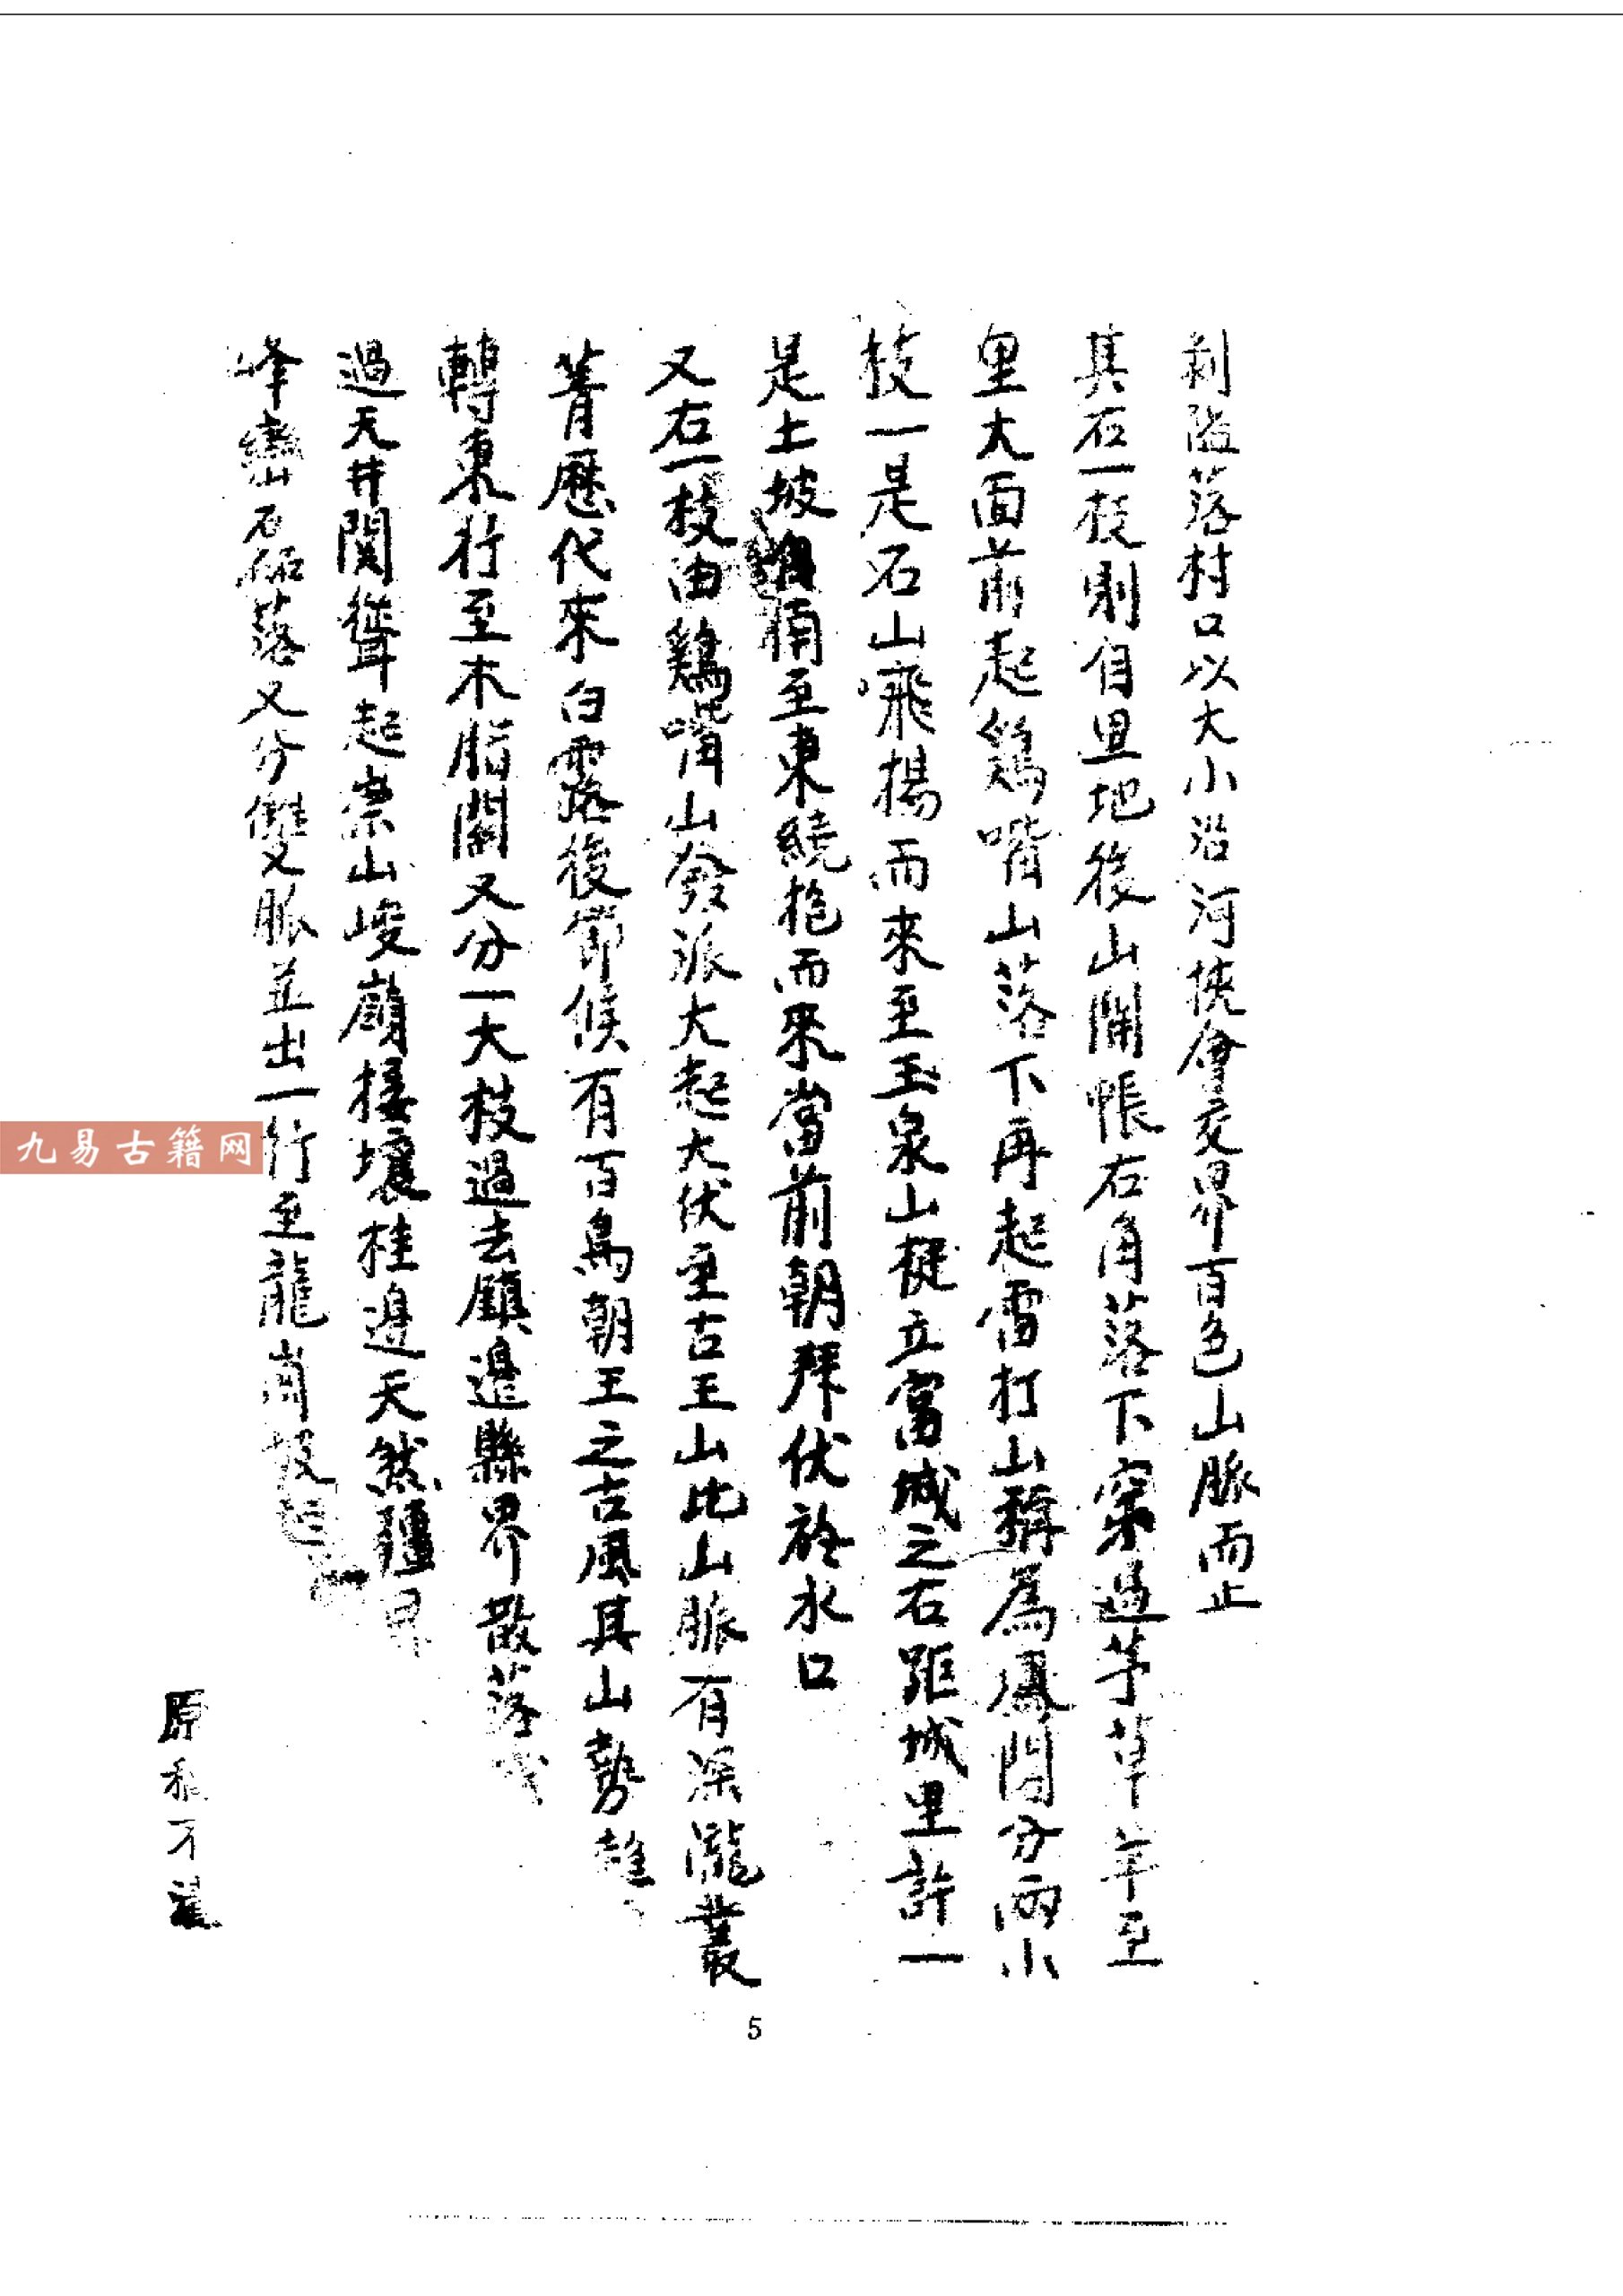 剥隘落村口以大小沿河挾會交界百色山脈而止
其右一枝則自里地後山開帳右角落下穿過茅草羊至
里大面前起鷄嘴山落下再起雷打山稱為鳳閣分兩小
枝一是石山飛揚而來至玉泉山挺立富城之右距城里許一
是土坡至東繞抱而來當前朝拜伏於水口
又右一枝由鷄嘴山發派大起大伏至古王山此山脈有深瀧叢
菁歷代來白露後節候有百鳥朝王之古風其山勢雄
轉東行至木腊關又分一大枝過去鎮邊縣界散落
過天井関聳起崇山峻嶺接壤桂邊天然疆界
峰巒磊落又分雙脈並出一行至龍崗坡
原稿不清
5
九易古籍网